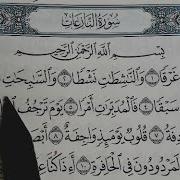 سُورَةُ النَّازِعَاتِ
بِسْمِ اللَّهِ الرَّحْمَٰنِ الرَّحِيمِ
غَرْقًا ۝١ وَالنَّٰشِطَٰتِ نَشْطًا ۝٢ وَالسَّٰبِحَٰتِ
سَبْقًا ۝٤ فَالْمُدَبِّرَٰتِ أَمْرًا ۝٥ يَوْمَ تَرْجُفُ
۝٧ قُلُوبٌ يَوْمَئِذٍ وَاجِفَةٌ ۝٨
لَمَرْدُودُونَ فِي الْحَافِرَةِ ۝١٠ أَءِذَا كُنَّا